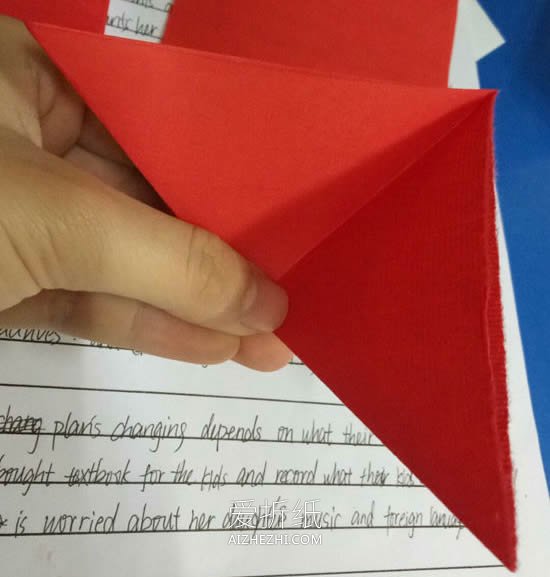 her
chang plan's changing depends on what their
bought textbook for the kids and record what their kids
is worried about her music and foreign
爱折纸
AIZHEZHI.COM